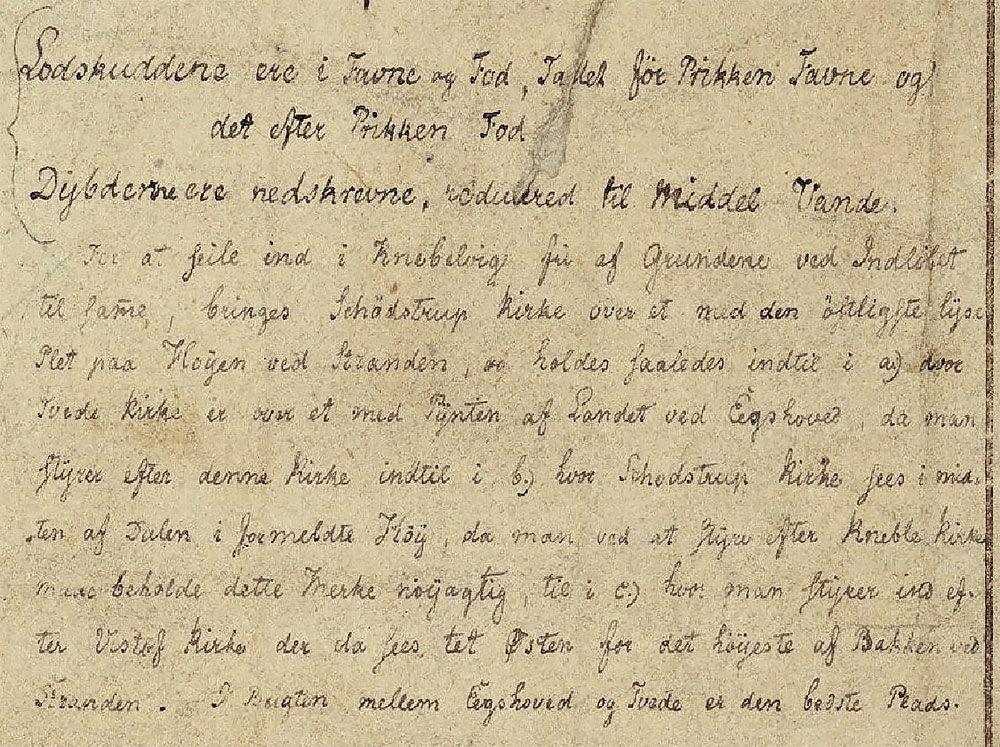 Lodskuddene ere i Favne og Fod, Tallet för Prikken Favne og
det efter Prikken Fod
Dÿbderne ere nedskrevne, reducered til Middel Vande.
For at seile ind i Knebelvig fri af Grundene ved Indlöbet
til same, bringes Schödstrup Kirke over et med den östligste lyse
Plet paa Höÿen ved Stranden, og holdes saaledes indtil i a) hvor
Tvede Kirke er over et med Pÿnten af Landet ved Eegshoved, da man
stÿrer efter denne Kirke indtil i b.) hvor Schödstrup Kirke sees i mid-
ten af Dalen i formeldte Höÿ, da man ved at stÿre efter Kneble Kirke
maae beholde dette Merke nöÿagtig, til i c.) hvor man stÿrer ind ef-
ter Vistöf Kirke der da sees tet Østen for det höÿeste af Bakken ved
Stranden. I Bugten mellem Eegshoved og Tvede er den bedste Plads.